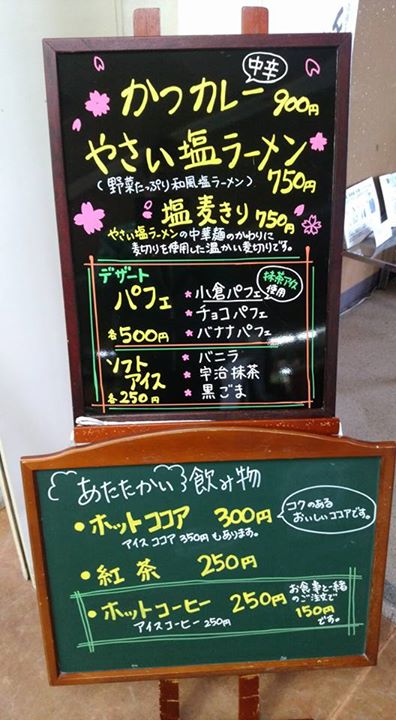 中辛
かつカレー 900円
やさい塩ラーメン
(野菜たっぷり和風塩ラーメン) 750円
塩麦きり 750円
やさい塩ラーメンの中華麺のかわりに
麦切りを使用した温かい麦切りです。
デザート
パフェ
各500円
*小倉パフェ 抹茶アイス使用
*チョコパフェ
*バナナパフェ
ソフト
アイス
各250円
*バニラ
*宇治抹茶
*黒ごま
あたたかい飲み物
•ホットココア 300円
コクのある
おいしいココアです。
アイスココア 350円もあります。
•紅茶 250円
•ホットコーヒー 250円
アイスコーヒー 250円
お食事と一緒
のご注文で
150円
です。